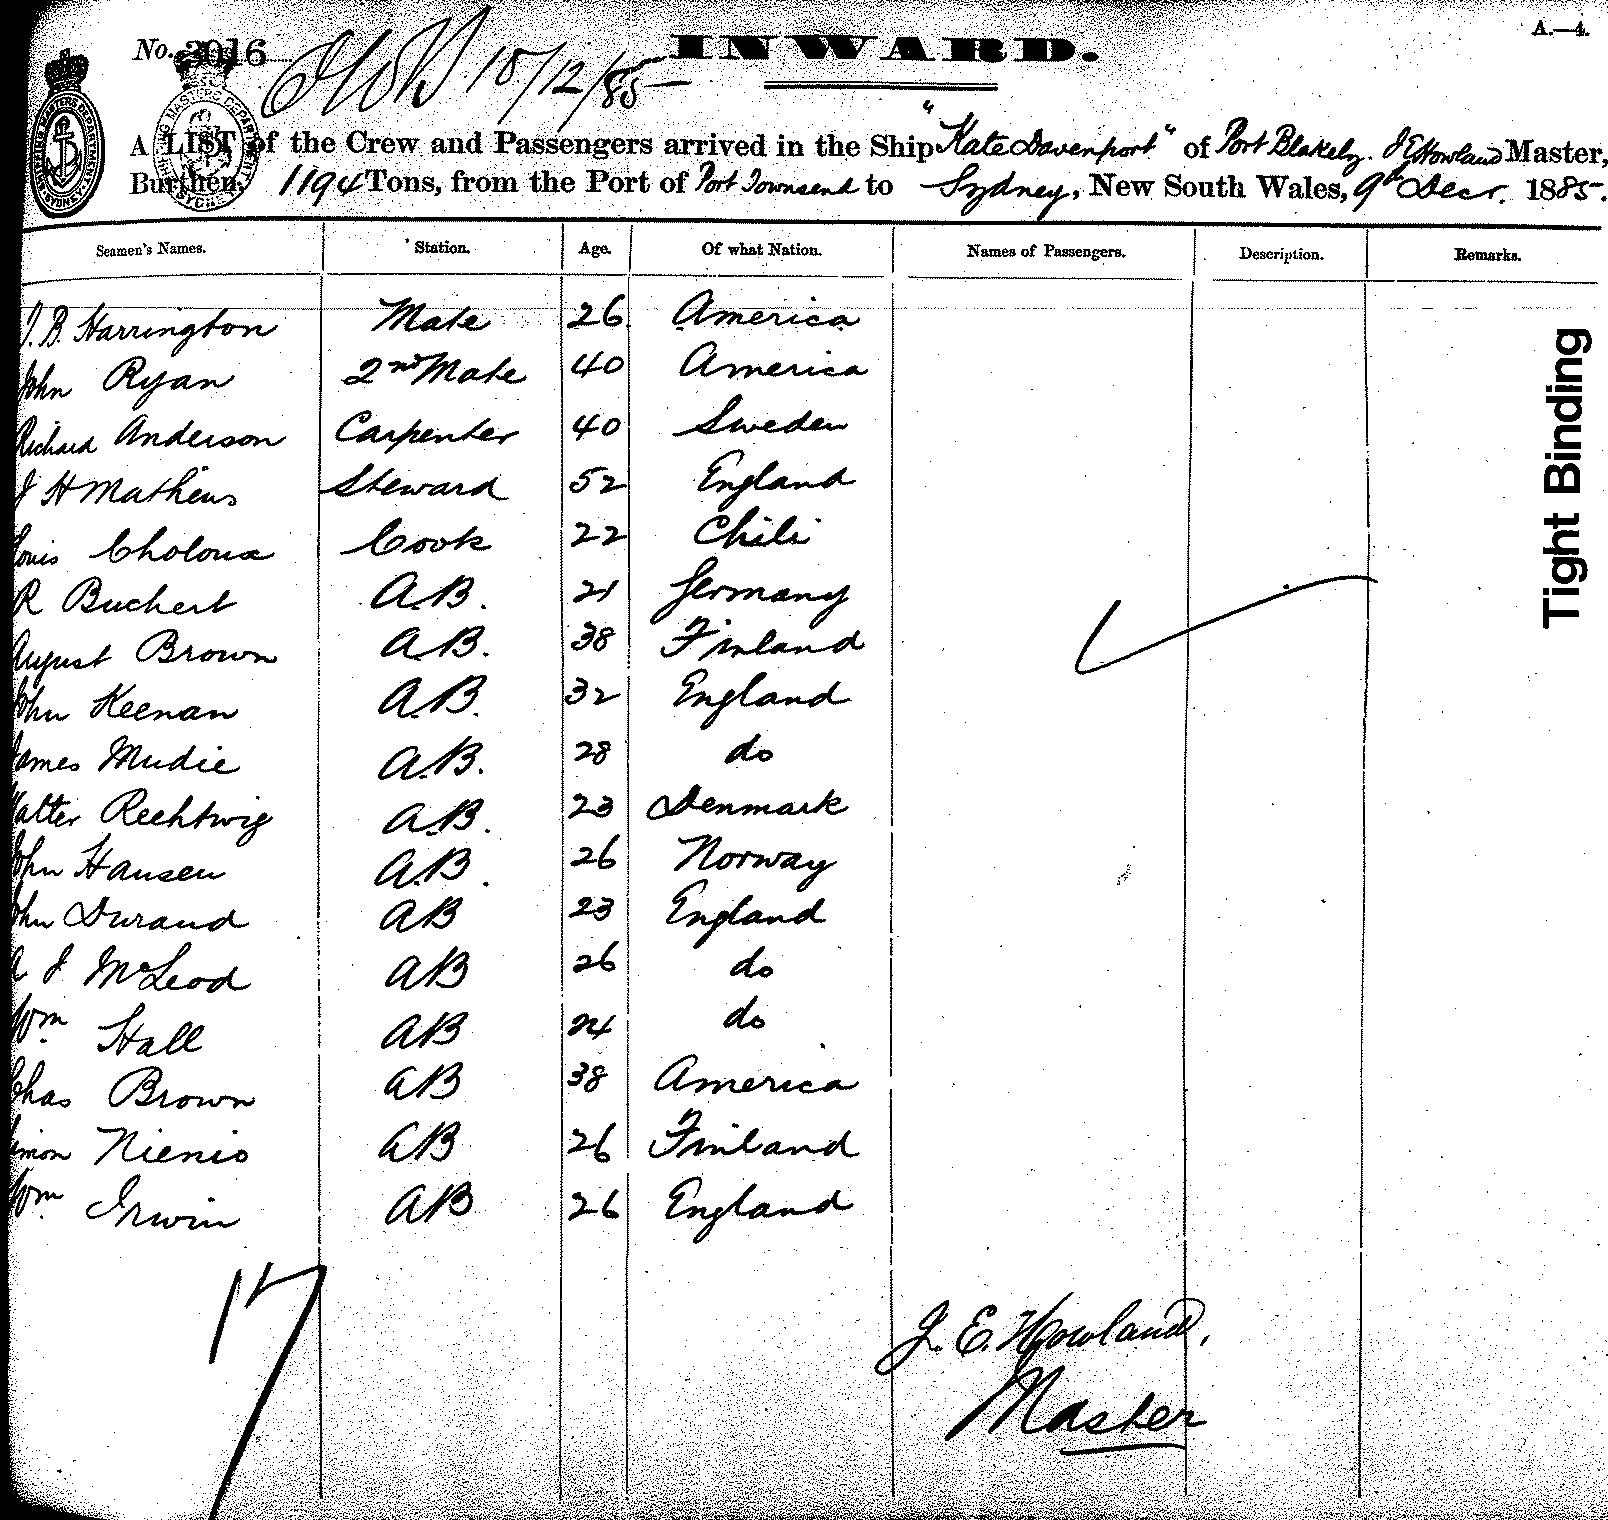 No. 2016 10/12/85 INWARD. A.—4.
A LIST of the Crew and Passengers arrived in the Ship "Kate Davenport" of Port Blakely. J E Howland Master,
Burthen, 1194 Tons, from the Port of Port Townsend to Sydney, New South Wales, 9th Decr. 1885.
Seamen's Names. Station. Age. Of what Nation. Names of Passengers. Description. Remarks.
J. B. Harrington Mate 26 America
John Ryan 2nd Mate 40 America
Richard Anderson Carpenter 40 Sweden
J H Mathews Steward 52 England
Louis Choloux Cook 22 Chili
R Buchert A.B. 21 Germany
August Brown A.B. 38 Finland
John Keenan A.B. 32 England
James Mudie A.B. 28 do
Walter Rechtwig A.B. 23 Denmark
John Hansen A.B. 26 Norway
John Durand AB 23 England
A J McLeod AB 26 do
Wm Hall AB 24 do
Chas Brown AB 38 America
Simon Nienis AB 26 Finland
Wm Irwin AB 26 England
17
J. E. Howland,
Master
Tight Binding